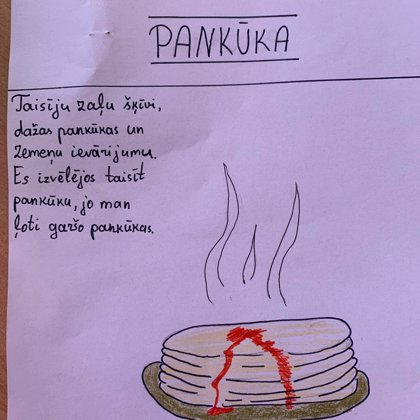 PANKŪKA
Taisīju zaļu šķīvi,
dažas pankūkas un
zemeņu ievārījumu.
Es izvēlējos taisīt
pankūku, jo man
ļoti garšo pankūkas.